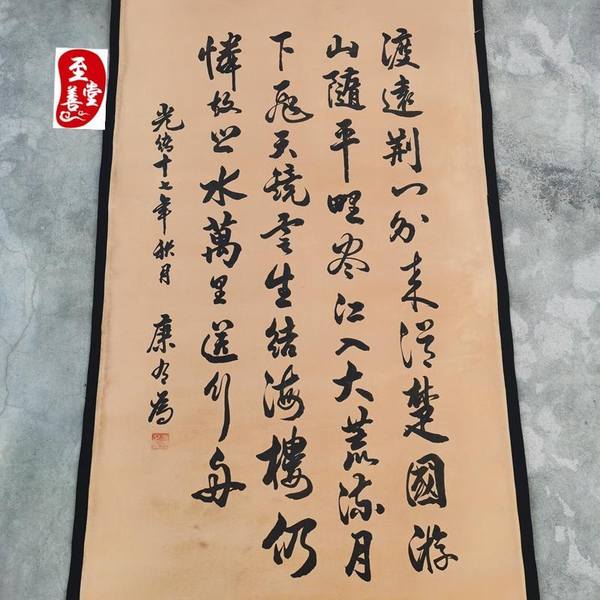 渡遠荆門外来從楚國游
山隨平野尽江入大荒流月
下飛天鏡雲生結海樓仍
憐故鄉水萬里送行舟
光緒十七年秋月 康有為
至善堂